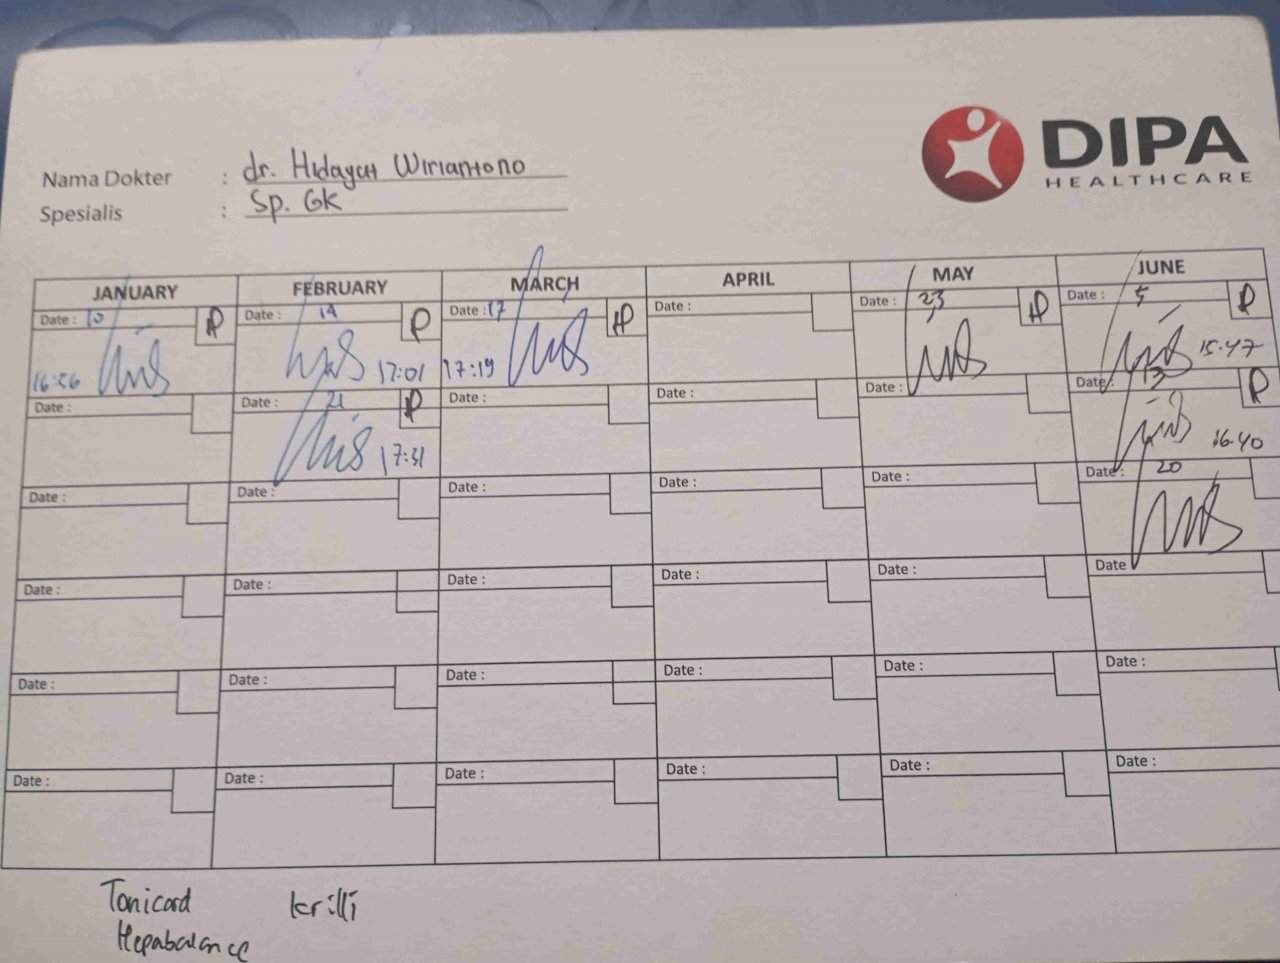 DIPA
HEALTHCARE
Nama Dokter : dr. Hidayat Wiriantono
Spesialis : Sp. GK
JANUARY FEBRUARY MARCH APRIL MAY JUNE
Date : 10 P Date : 14 P Date : 17 P Date : Date : 23 P Date : 5 P
16:56 17:01 17:19 15.47
Date : Date : 21 P Date : Date : Date : Date : 13 P
17:31 16.40
Date : Date : Date : Date : Date : Date : 20
Date : Date : Date : Date : Date : Date
Date : Date : Date : Date : Date : Date :
Date : Date : Date : Date : Date : Date :
Tonicard Krilli
Hepabalance